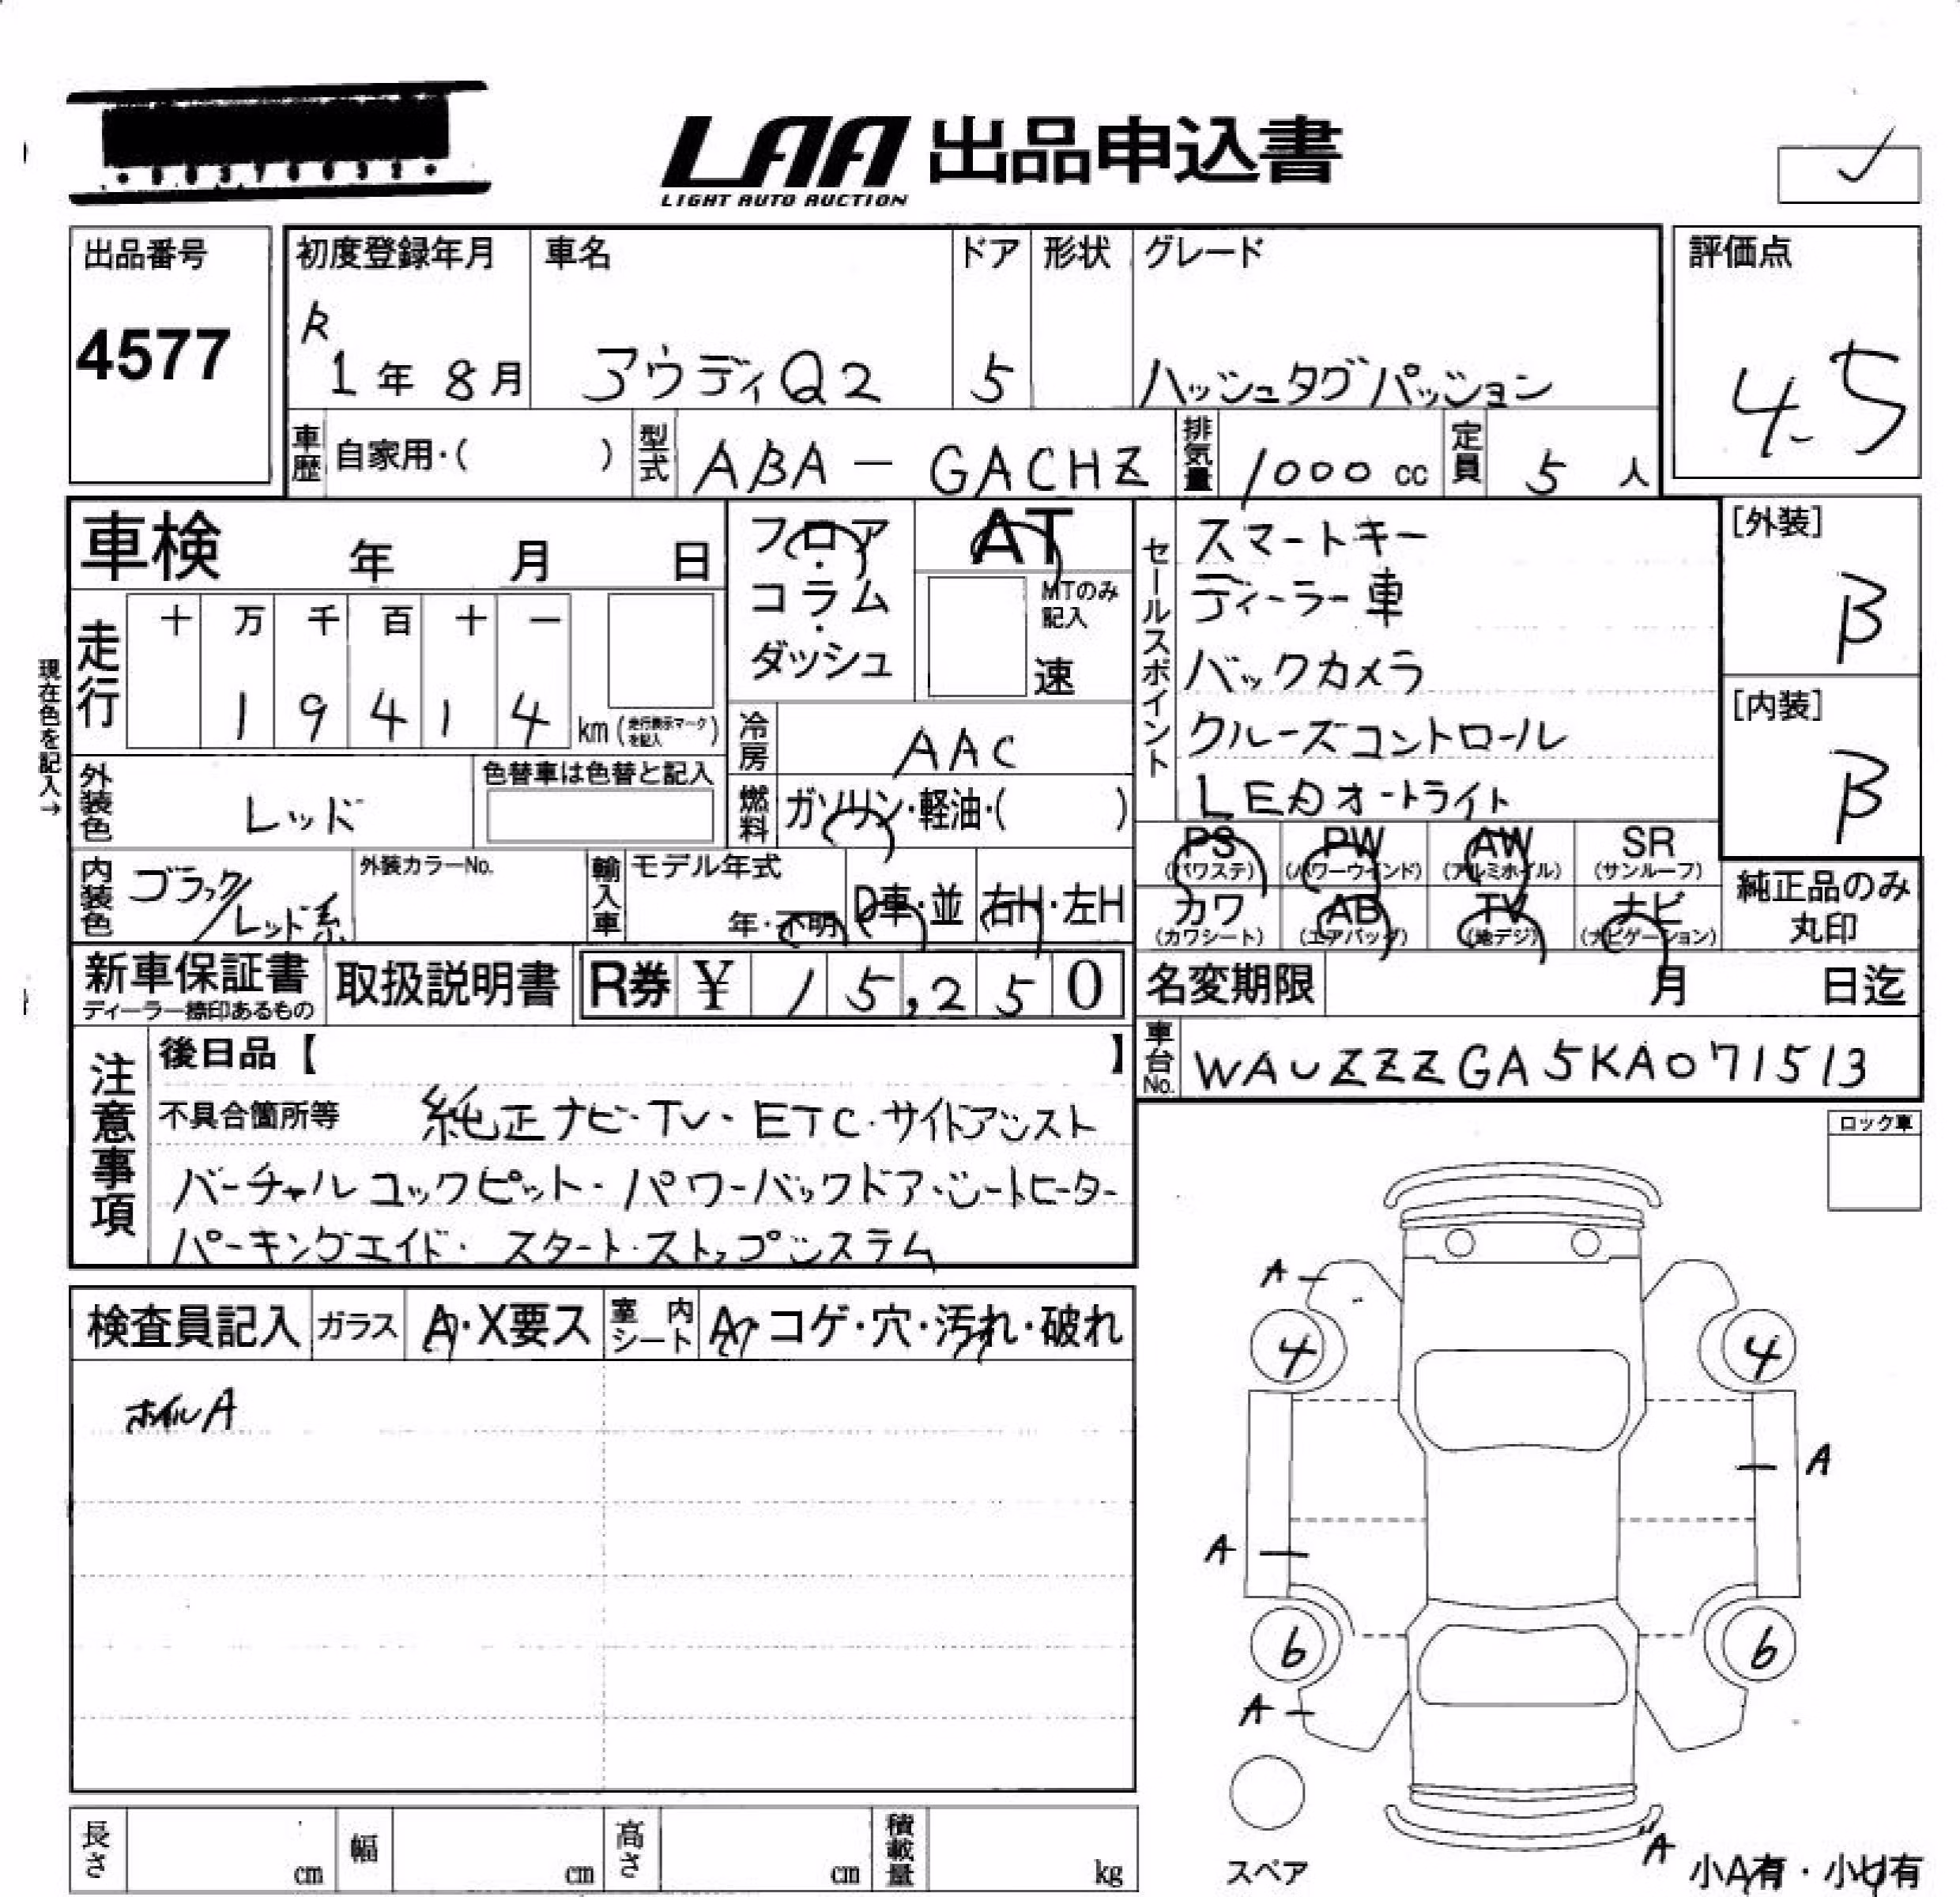 LAA 出品申込書
LIGHT AUTO AUCTION
出品番号
4577
初度登録年月
R
1年 8月
車名
アウディQ2
ドア
5
形状
グレード
ハッシュタグパッション
評価点
4.5
車歴 自家用・( )
型式 ABA - GACHZ
排気量 1000 cc
定員 5 人
車検 年 月 日
フロア・コラム・ダッシュ
AT
MTのみ記入
速
セールスポイント
スマートキー
ディーラー車
バックカメラ
クルーズコントロール
LEDオートライト
[外装]
B
[内装]
B
現在色を記入→
走行
十 万 千 百 十 一
1 9 4 1 4 km (走行表示マークを記入)
冷房 AAC
外装色 レッド
色替車は色替と記入
燃料 ガソリン・軽油・( )
PS (パワステ)
PW (パワーウインド)
AW (アルミホイル)
SR (サンルーフ)
カワ (カワシート)
AB (エアバッグ)
TV (地デジ)
ナビ (ナビゲーション)
純正品のみ丸印
内装色 ブラック/レッド系
外装カラーNo.
輸入車 モデル年式
年・不明
D車・並
右H・左H
新車保証書
ディーラー捺印あるもの
取扱説明書
R券 ¥ 15,250
名変期限 月 日迄
車台No. WAUZZZGA5KA071513
注意事項
後日品【 】
不具合箇所等 純正ナビ・TV・ETC・サイドアシスト
バーチャルコックピット・パワーバックドア・シートヒーター
パーキングエイド・スタート・ストップシステム
ロック車
検査員記入
ガラス A・X要ス
室内シート A・コゲ・穴・汚れ・破れ
ホイルA
A
4 4
A
A
6 6
A
スペア
A
小A有・小U有
長さ cm
幅 cm
高さ cm
積載量 kg